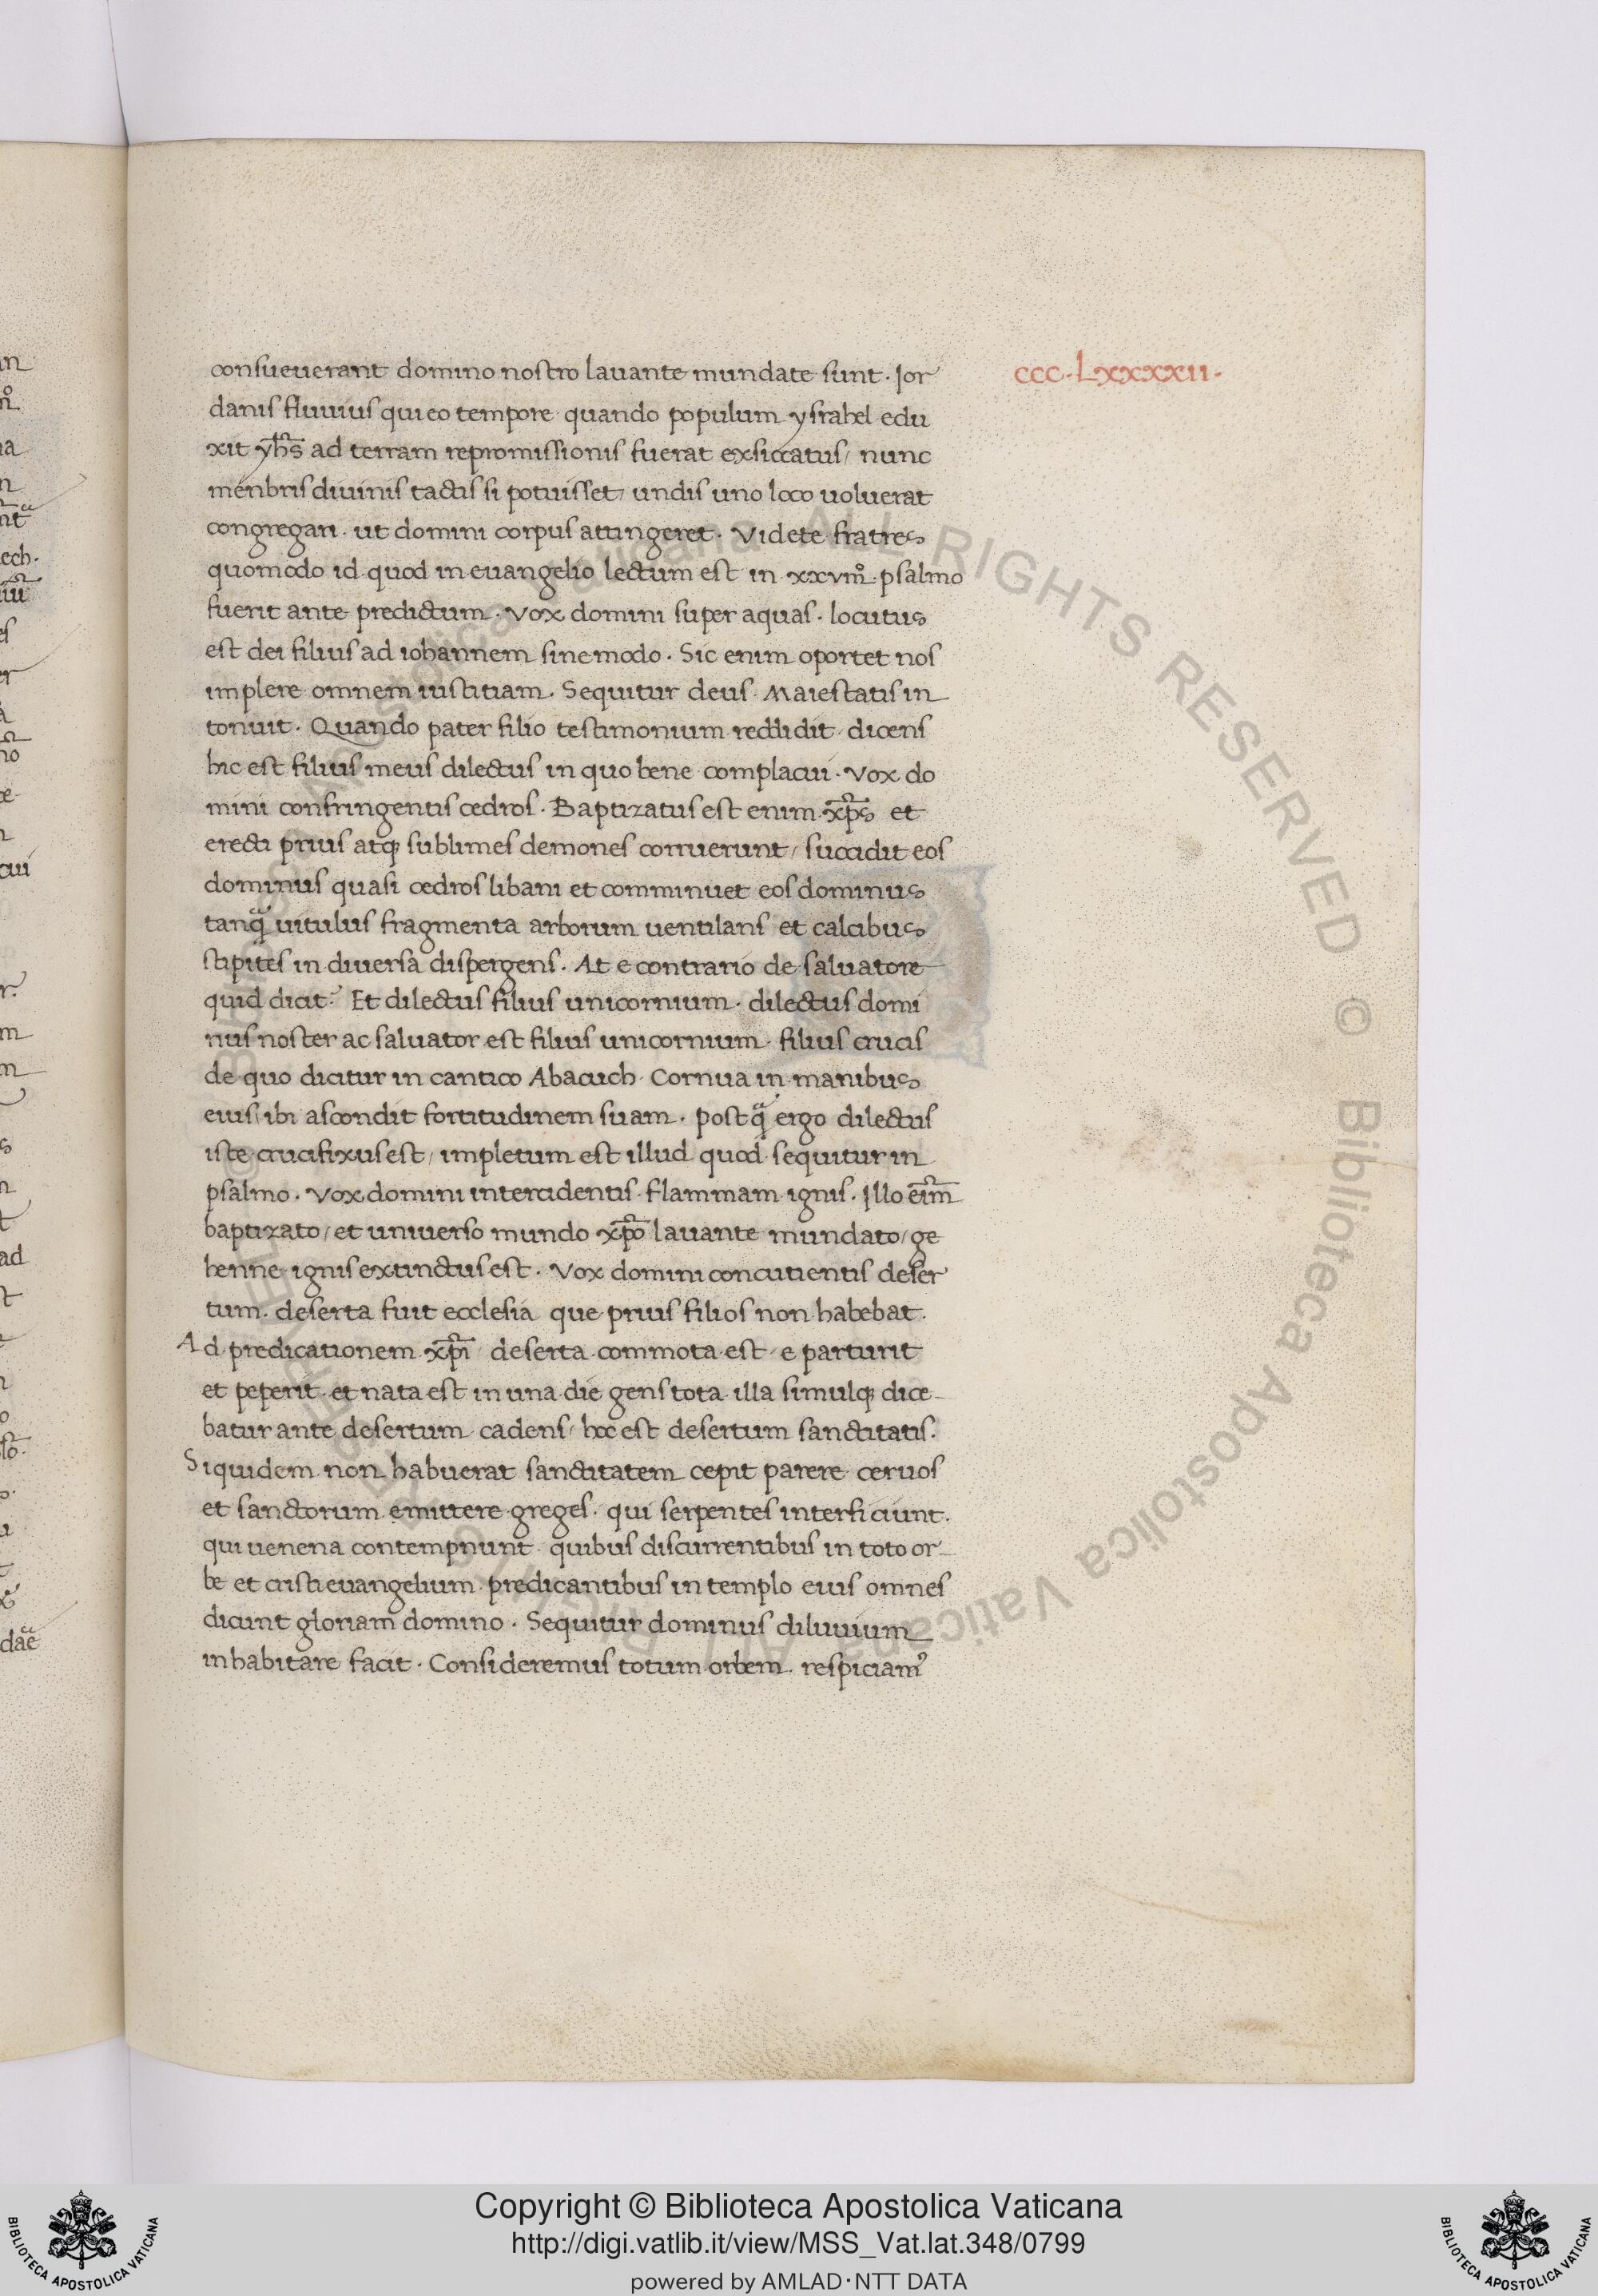 consueuerant domino nostro lauante mundate sunt. Jor
ccc.Lxxxxii.
danis fluuius qui eo tempore quando populum ysrahel edu
xit yħs ad terram repromissionis fuerat exsiccatus, nunc
menbris diuinis tactis si potuisset, undis uno loco uoluerat
congregari. ut domini corpus attingeret. Videte fratres
quomodo id quod in euangelio lectum est in xxviiiº psalmo
fuerit ante predictum. Vox domini super aquas. locutus
est dei filius ad iohannem sine modo. Sic enim oportet nos
implere omnem iustitiam. Sequitur deus Maiestatis in
tonuit. Quando pater filio testimonium reddidit dicens
hic est filius meus dilectus in quo bene complacui. Vox do
mini confringentis cedros. Baptizatus est enim xp̄s et
erecti prius atq; sublimes demones corruerunt, succidit eos
dominus quasi cedros libani et comminuet eos dominus
tanq̃ uitulus fragmenta arborum uentilans et calcibus
stipites in diuersa dispergens. At e contrario de saluatore
quid dicit? Et dilectus filius unicornium. dilectus domi
nus noster ac saluator est filius unicornium. filius crucis
de quo dicitur in cantico Abacuch. Cornua in manibus
eius, ibi ascondit fortitudinem suam. postq̃ ergo dilectus
iste crucifixus est, impletum est illud quod sequitur in
psalmo. Vox domini intercidentis flammam ignis. Illo eīm
baptizato, et uniuerso mundo xp̄o lauante mundato, ge
henne ignis extinctus est. Vox domini concutientis deser
tum. deserta fuit ecclesia que prius filios non habebat.
Ad predicationem xp̄i deserta commota est, e parturit
et peperit. et nata est in una die gens tota illa simulq; dice
batur ante desertum cadens, hoc est desertum sanctitatis.
Siquidem non habuerat sanctitatem cepit parere ceruos
et sanctorum emittere greges. qui serpentes interficiunt.
qui uenena contempnunt quibus discurrentibus in toto or
be et cristi euangelium predicantibus in templo eius omnes
dicunt gloriam domino. Sequitur dominus diluuium
inhabitare facit. Consideremus totum orbem. respiciam⁹
Copyright © Biblioteca Apostolica Vaticana
http://digi.vatlib.it/view/MSS_Vat.lat.348/0799
powered by AMLAD·NTT DATA